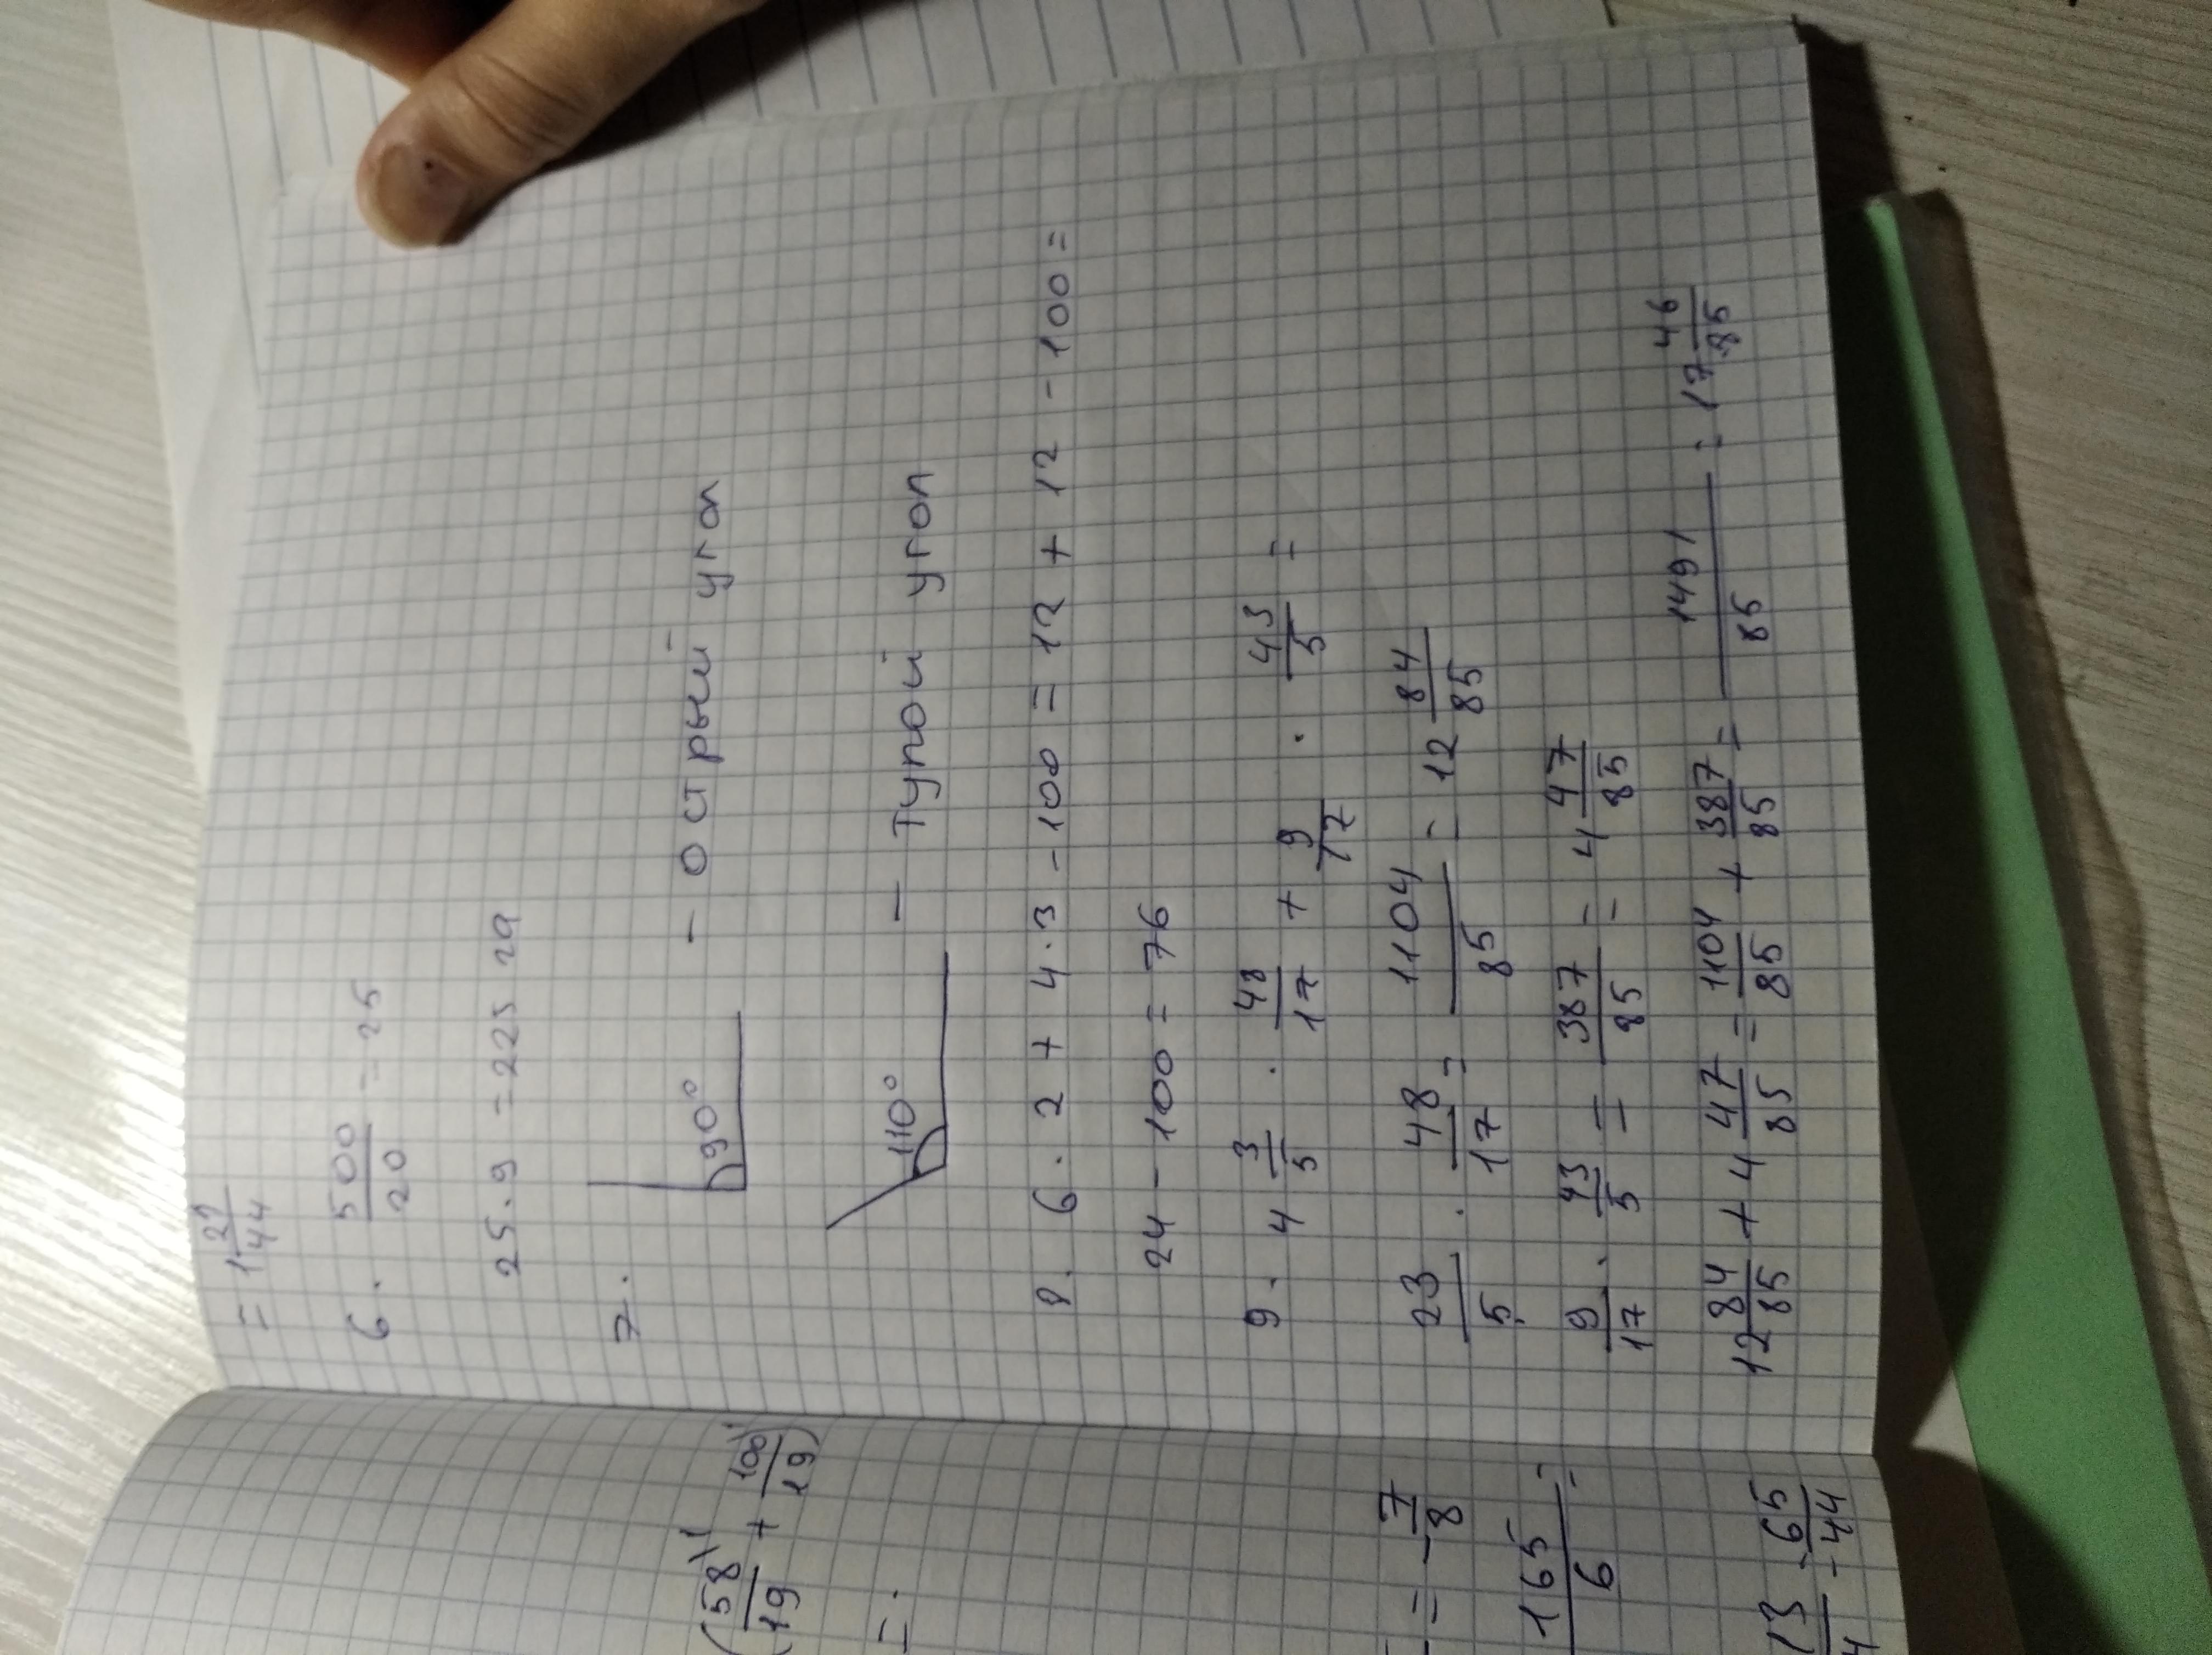 = 1 21/44
6. 500/20 = 25
25 · 9 = 225 га
7.
90° - острый угол
110° - Тупой угол
8. 6 · 2 + 4 · 3 - 100 = 12 + 12 - 100 =
24 - 100 = 76
9. 4 3/5 · 48/17 + 9/17 · 43/5 =
23/5 · 48/17 = 1104/85 = 12 84/85
9/17 · 43/5 = 387/85 = 4 47/85
12 84/85 + 4 47/85 = 1104/85 + 387/85 = 1491/85 = 17 46/85
(58/19 + 100/19)
=
= 7/8
165/6 =
13 - 65
4 - 44